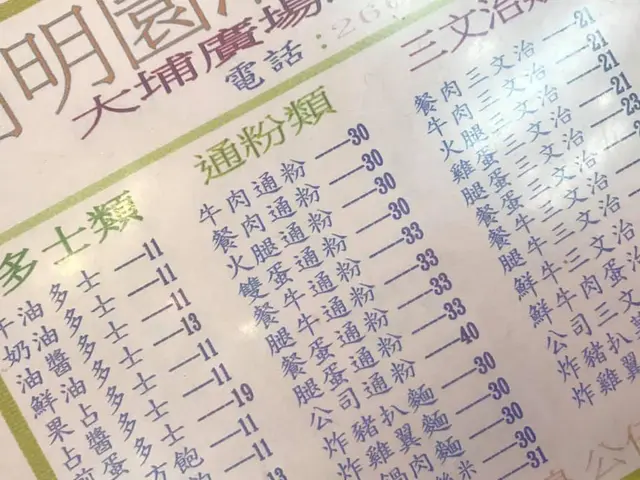 明園
大埔廣場
電話:26
多士類
牛油多士 —11
奶油多士 —11
油醬多士 —11
鮮油多士 —13
果占多士 —11
占醬多士 —11
煎蛋多士 —19
方飽 —11
通粉類
牛肉通粉 —30
餐肉通粉 —30
火腿通粉 —30
雙蛋通粉 —30
餐牛通粉 —33
腿牛通粉 —33
餐蛋通粉 —33
腿蛋通粉 —33
公司通粉 —40
炸豬扒麵 —30
炸雞翼麵 —30
肉麵 —30
三文治類
餐肉三文治 —21
牛肉三文治 —21
火腿三文治 —21
雞蛋三文治 —21
腿蛋三文治 —23
餐蛋三文治
餐牛三文治
腿牛三文治
鮮牛三文治
鮮牛肉蛋治
公司三文
炸豬扒
炸雞翼